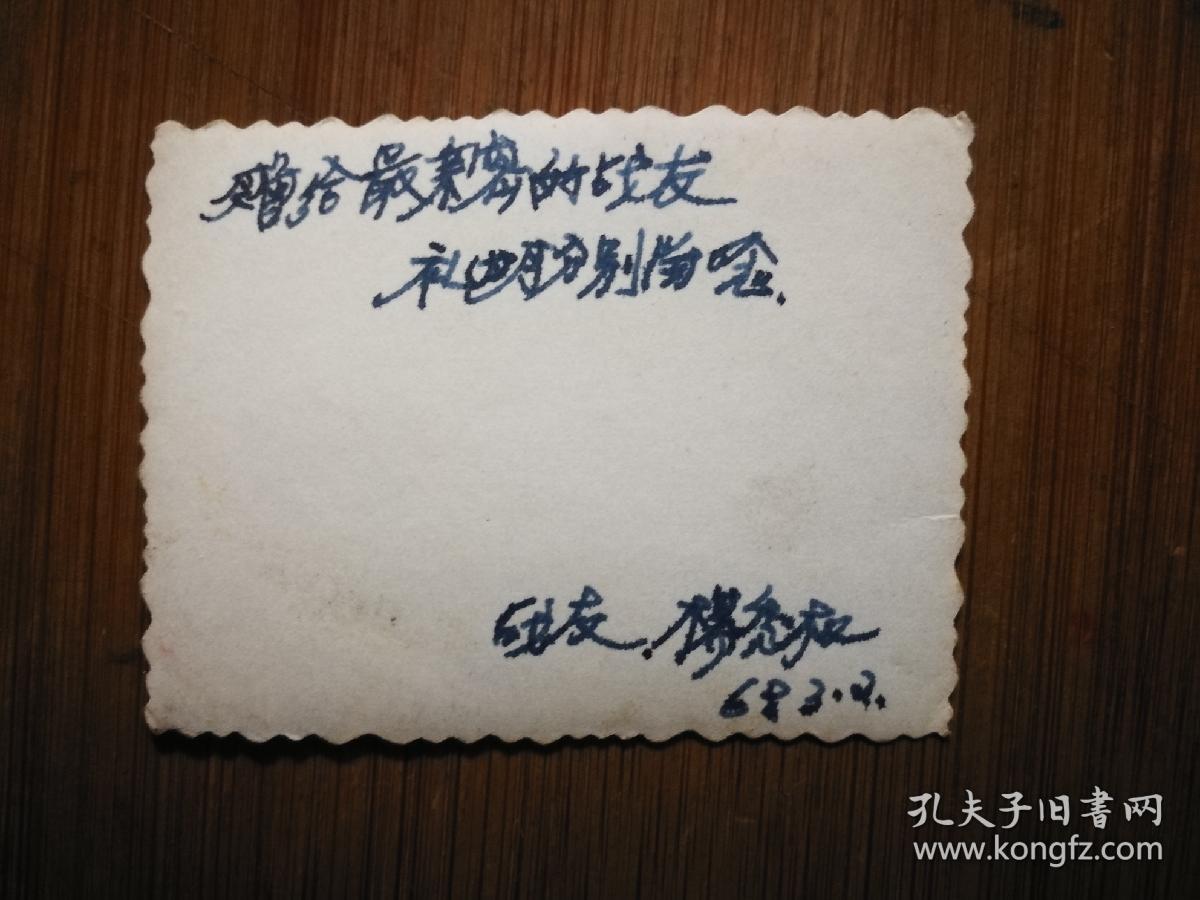 赠给最亲密的战友
礼明分别留念.
战友.杨秀权
68 3.2.
孔夫子旧書网
www.kongfz.com